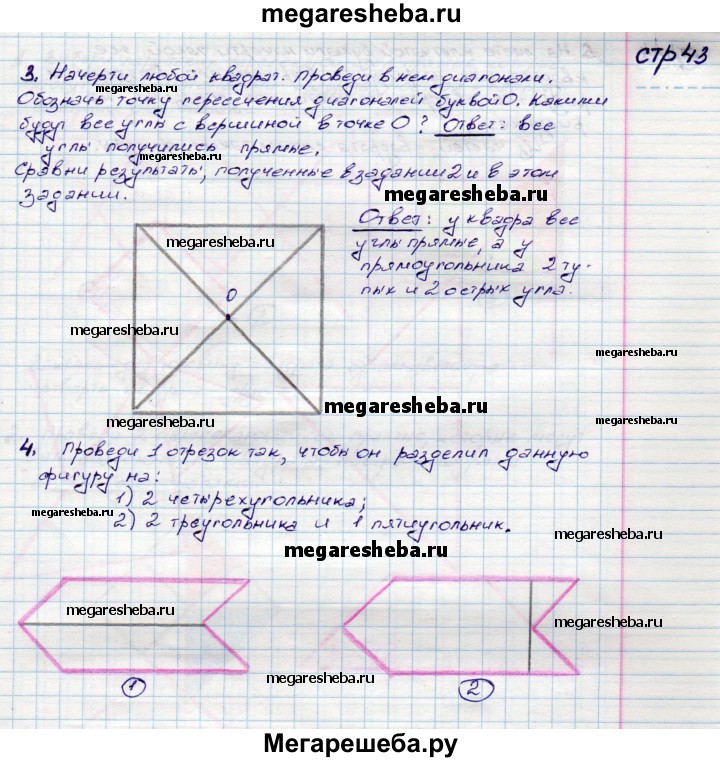 megaresheba.ru
стр 43
3. Начерти любой квадрат. Проведи в нем диагонали.
megaresheba.ru
Обозначь точку пересечения диагоналей буквой О. Какими
будут все углы с вершиной в точке О? Ответ: все
углы получились прямые.
megaresheba.ru
Сравни результаты, полученные в задании 2 и в этом
задании.
megaresheba.ru
Ответ: у квадра все
углы прямые, а у
прямоугольника 2 ту-
пых и 2 острых угла.
megaresheba.ru
О
megaresheba.ru
megaresheba.ru
megaresheba.ru
4. Проведи 1 отрезок так, чтобы он разделил данную
фигуру на:
1) 2 четырехугольника;
2) 2 треугольника и 1 пятиугольник.
megaresheba.ru
megaresheba.ru
megaresheba.ru
megaresheba.ru
megaresheba.ru
megaresheba.ru
1
2
Мегарешеба.ру